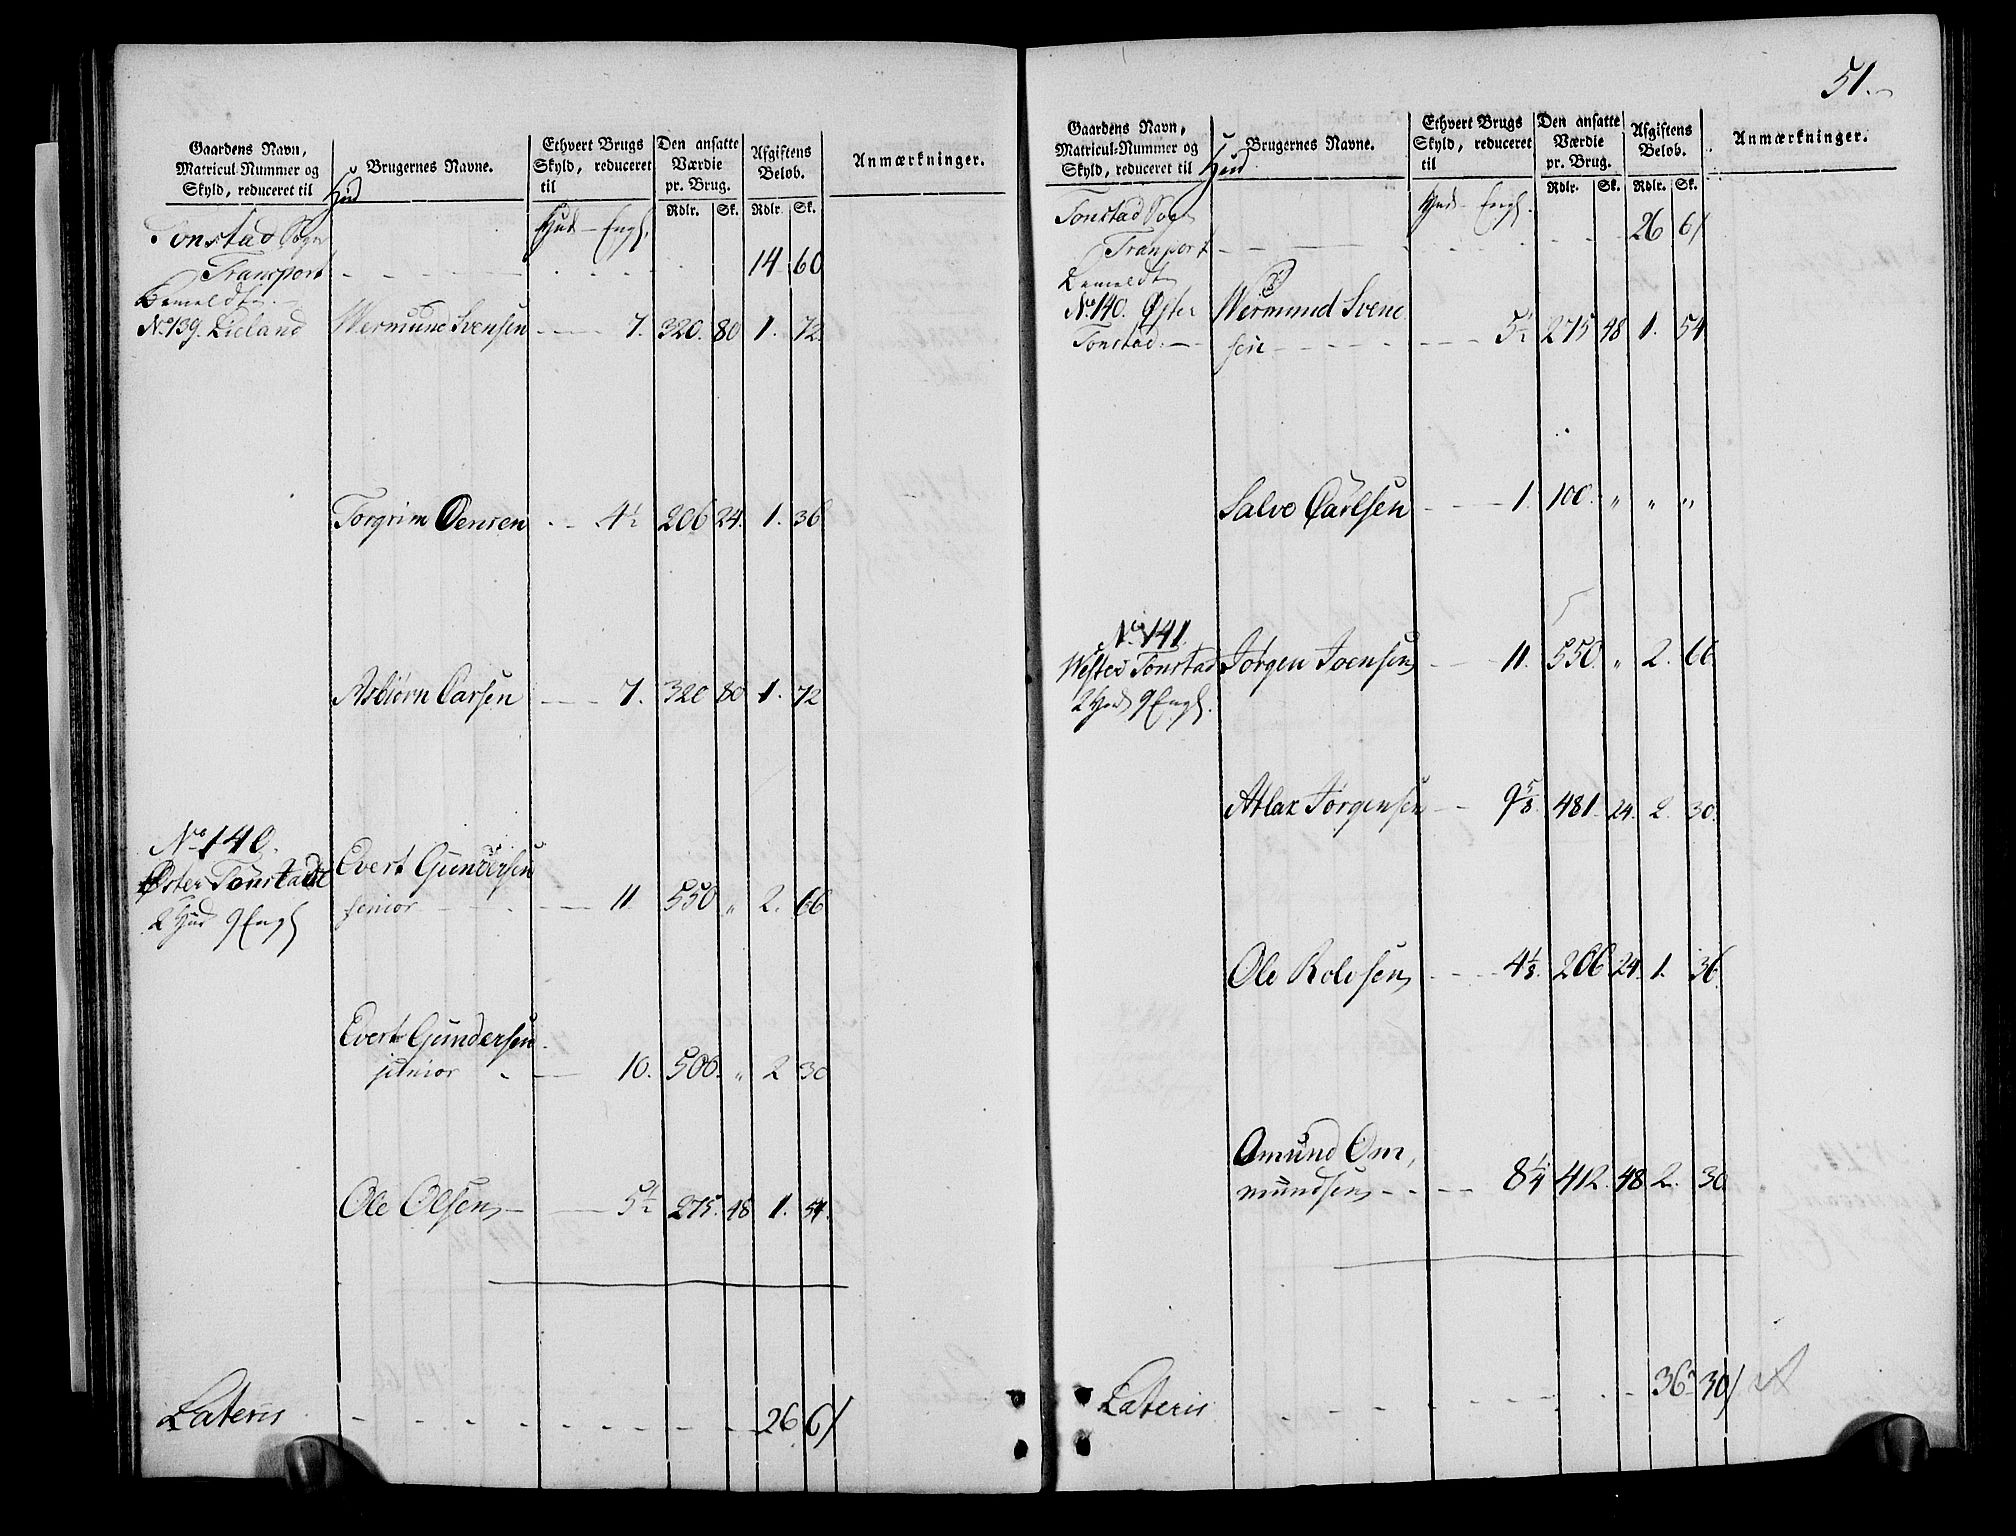 Gaardens Navn,
Matricul-Nummer og
Skyld, reduceret til
Hud
Brugernes Navne.
Ethvert Brugs
Skyld, reduceret
til
Den ansatte
Værdie
pr. Brug.
Afgiftens
Beløb.
Anmærkninger.
Rdlr. Sk. Rdlr. Sk.
Tonstad Sogn Hud - Engl.
Transport - - - - 14 60
Bemeldte
No 139. Lieland Wermund Svensen - - 7. 320. 80 1. 72.
Torgrim Oensen - - 4½ 206 24. 1. 36
Asbiørn Carsen - - 7. 320 80 1. 72
No 140.
Øster Tonstad Evert Gundersen
2 Hud 9 Engl senior - - 11. 550 " 2. 66
Evert Gundersen
junior - - 10. 500. " 2 30
Ole Olsen - - 5½ 275. 48 1. 54.
Lateris - - - - 26 6/
51.
Gaardens Navn,
Matricul-Nummer og
Skyld, reduceret til
Hud
Brugernes Navne.
Ethvert Brugs
Skyld, reduceret
til
Den ansatte
Værdie
pr. Brug.
Afgiftens
Beløb.
Anmærkninger.
Rdlr. Sk. Rdlr. Sk.
Tonstad Sogn Hud - Engl.
Transport - - - - 26 6/
Bemeldte
No 140. Øster Wermund Svend
Tonstad. sen - - - 5½ 275 48 1. 54
Salve Carlsen - - 1. 100. " " "
No 141.
Wester Tonstad Jørgen Joensen - - 11. 550. " 2. 66.
2 Hud 9 Engl.
Atlak Jørgensen - - 9⅝ 481. 24. 2. 30.
Ole Rolvsen - - 4⅛. 206 24. 1. 36.
Omund Om,
mundsen - - - 8¼ 412. 48 2. 30
Lateris - - - - 36 30/